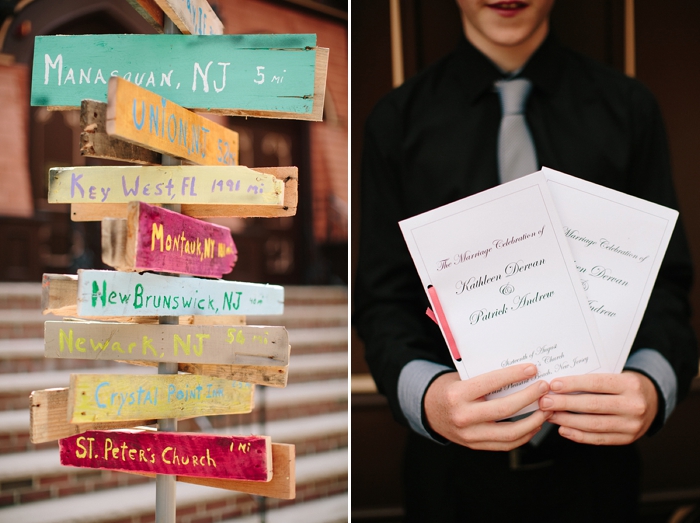 Manasquan, NJ 5 mi
Union, NJ
Key West, FL 1991 mi
Montauk, NY
New Brunswick, NJ
Newark, NJ
Crystal Point Inn
St. Peter's Church 1 mi
The Marriage Celebration of
Kathleen Dervan
&
Patrick Andrew
Sixteenth of August
Church
New Jersey
Marriage Celebration of
Dervan
&
Andrew